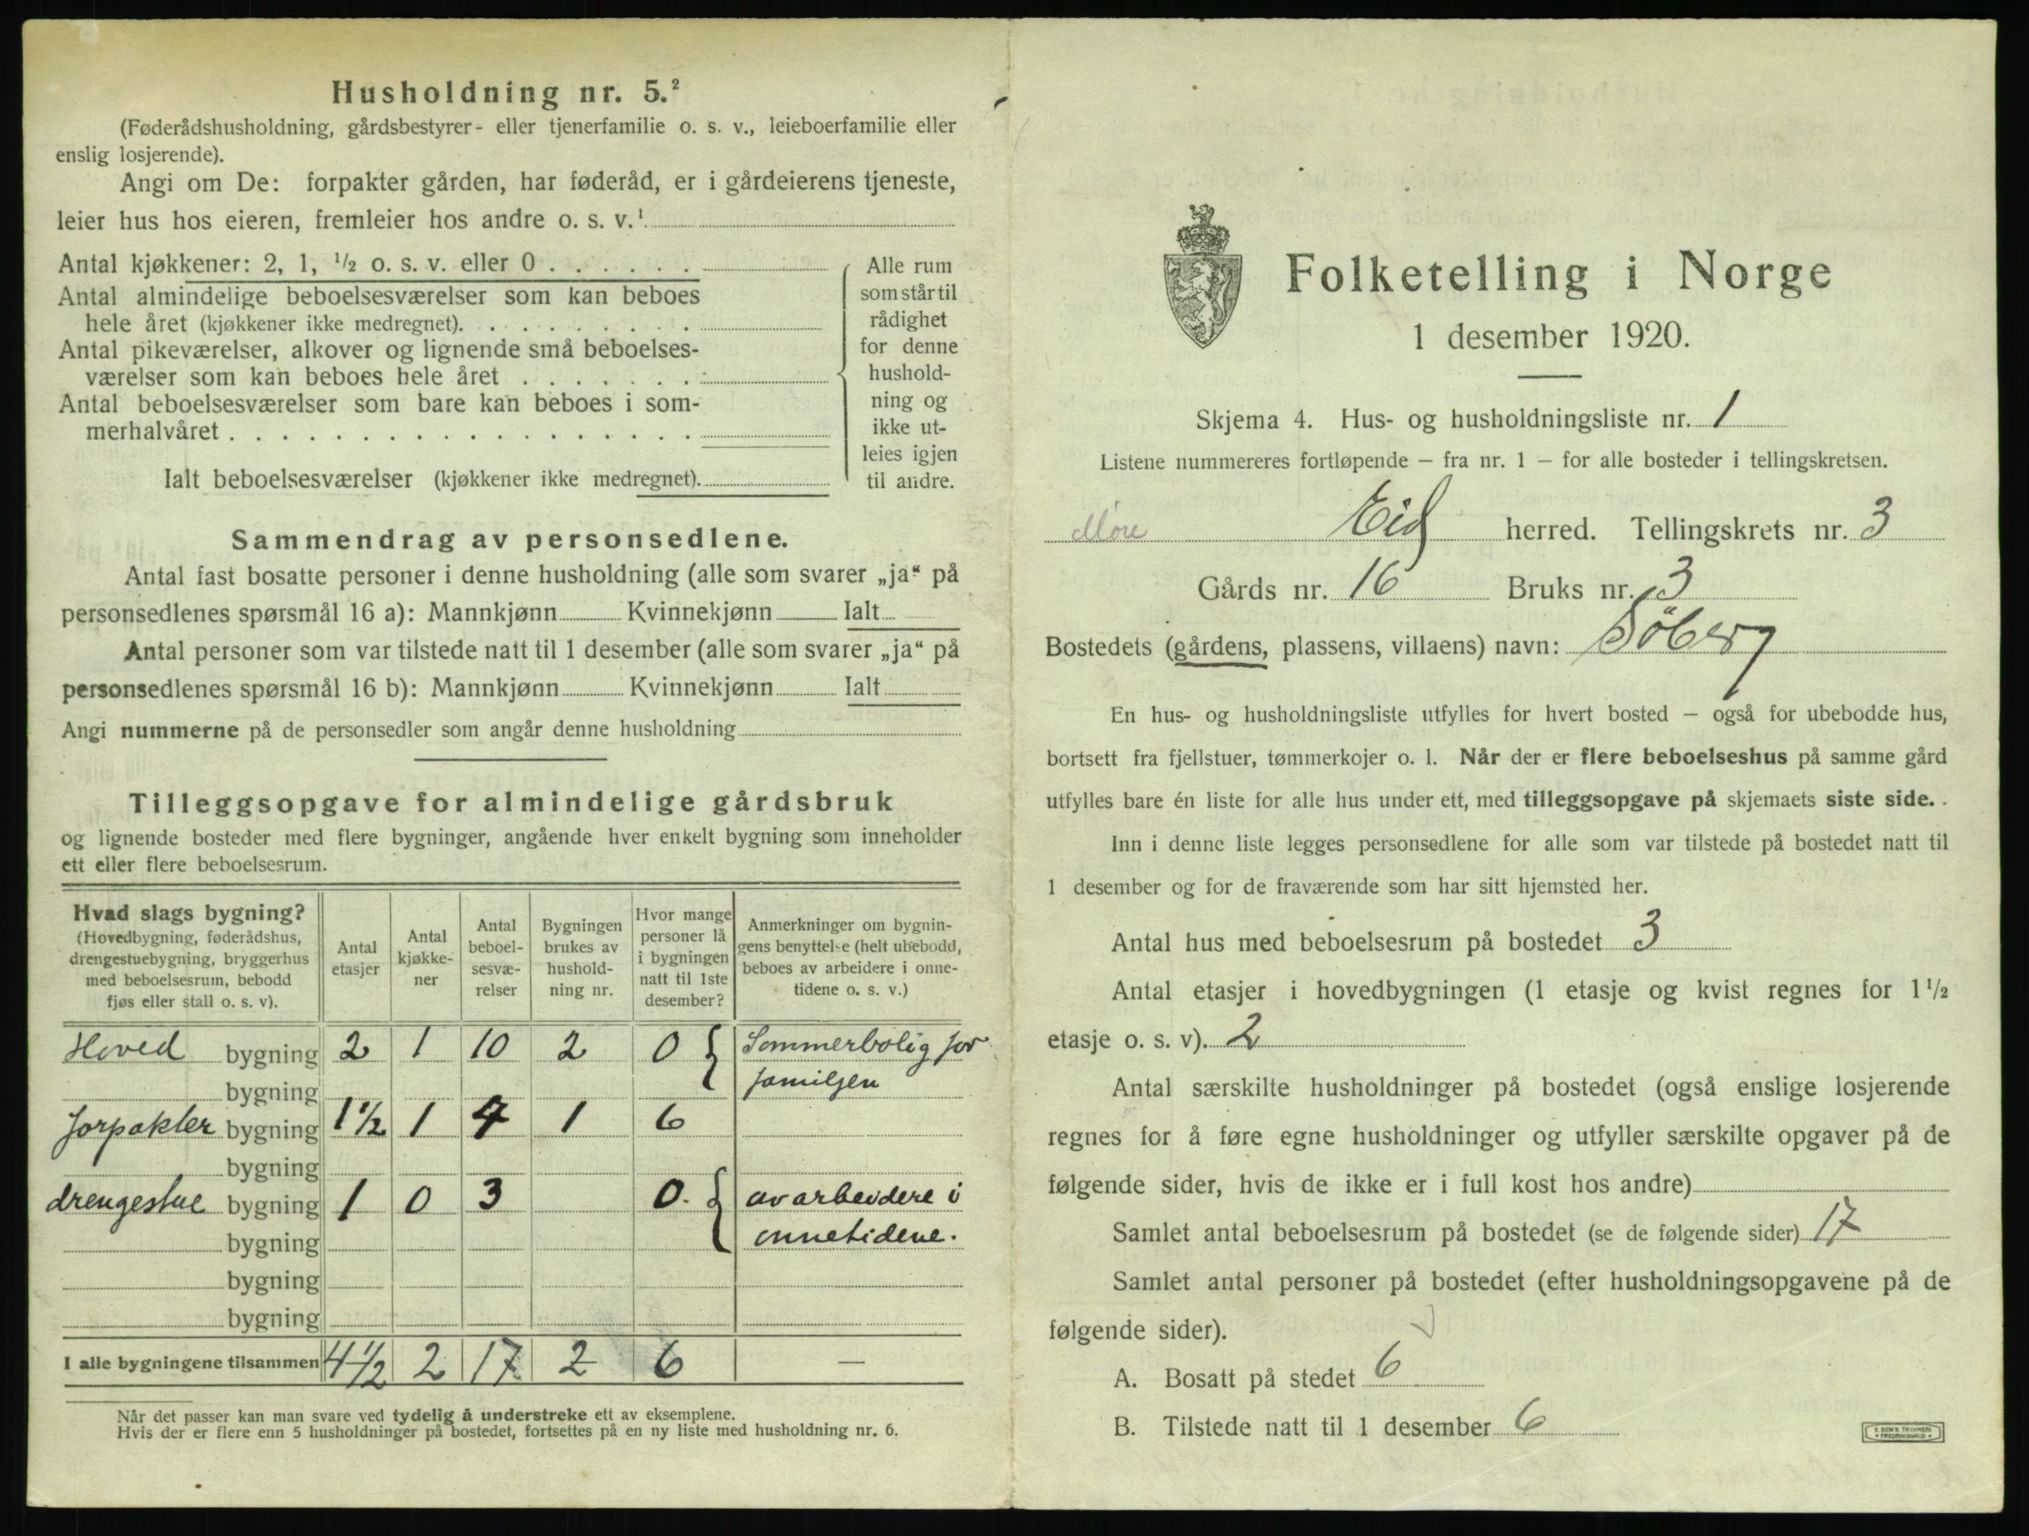 Husholdning nr. 5.²
(Føderådshusholdning, gårdsbestyrer- eller tjenerfamilie o. s. v., leieboerfamilie eller
enslig losjerende).
Angi om De: forpakter gården, har føderåd, er i gårdeierens tjeneste,
leier hus hos eieren, fremleier hos andre o. s. v.¹
Antal kjøkkener: 2, 1, ½ o. s. v. eller 0 . . . . . .
Antal almindelige beboelsesværelser som kan beboes
hele året (kjøkkener ikke medregnet). . . . . . . . .
Antal pikeværelser, alkover og lignende små beboelses-
værelser som kan beboes hele året . . . . . . .
Antal beboelsesværelser som bare kan beboes i som-
merhalvåret . . . . . . . . . . . . . . . . . .
Ialt beboelsesværelser (kjøkkener ikke medregnet).
Alle rum
som står til
rådighet
for denne
hushold-
ning og
ikke ut-
leies igjen
til andre.
Sammendrag av personsedlene.
Antal fast bosatte personer i denne husholdning (alle som svarer „ja“ på
personsedlenes spørsmål 16 a): Mannkjønn Kvinnekjønn Ialt
Antal personer som var tilstede natt til 1 desember (alle som svarer „ja“ på
personsedlenes spørsmål 16 b): Mannkjønn Kvinnekjønn Ialt
Angi nummerne på de personsedler som angår denne husholdning
Tilleggsopgave for almindelige gårdsbruk
og lignende bosteder med flere bygninger, angående hver enkelt bygning som inneholder
ett eller flere beboelsesrum.
Hvad slags bygning?
(Hovedbygning, føderådshus,
drengestuebygning, bryggerhus
med beboelsesrum, bebodd
fjøs eller stall o. s. v).
Antal
etasjer
Antal
kjøkke-
ner
Antal
beboel-
sesvæ-
relser
Bygningen
brukes av
hushold-
ning nr.
Hvor mange
personer lå
i bygningen
natt til 1ste
desember?
Anmerkninger om bygnin-
gens benyttelse (helt ubebodd,
beboes av arbeidere i onne-
tidene o. s. v.)
Hoved bygning 2 1 10 2 0 { Sommerbolig for
bygning familjen
forpakter bygning 1½ 1 4 1 6
bygning
drengestue bygning 1 0 3 0. { av arbeidere i
bygning onnetidene.
bygning
bygning
I alle bygningene tilsammen 4½ 2 17 2 6 —
Når det passer kan man svare ved tydelig å understreke ett av eksemplene.
Hvis der er flere enn 5 husholdninger på bostedet, fortsettes på en ny liste med husholdning nr. 6.
Folketelling i Norge
1 desember 1920.
Skjema 4. Hus- og husholdningsliste nr. 1
Listene nummereres fortløpende — fra nr. 1 — for alle bosteder i tellingskretsen.
Møre Eid herred. Tellingskrets nr. 3
Gårds nr. 16 Bruks nr. 3
Bostedets (gårdens, plassens, villaens) navn: Söberg
En hus- og husholdningsliste utfylles for hvert bosted — også for ubebodde hus,
bortsett fra fjellstuer, tømmerkojer o. l. Når der er flere beboelseshus på samme gård
utfylles bare én liste for alle hus under ett, med tilleggsopgave på skjemaets siste side.
Inn i denne liste legges personsedlene for alle som var tilstede på bostedet natt til
1 desember og for de fraværende som har sitt hjemsted her.
Antal hus med beboelsesrum på bostedet 3
Antal etasjer i hovedbygningen (1 etasje og kvist regnes for 1½
etasje o. s. v). 2
Antal særskilte husholdninger på bostedet (også enslige losjerende
regnes for å føre egne husholdninger og utfyller særskilte opgaver på de
følgende sider, hvis de ikke er i full kost hos andre)
Samlet antal beboelsesrum på bostedet (se de følgende sider) 17
Samlet antal personer på bostedet (efter husholdningsopgavene på de
følgende sider).
A. Bosatt på stedet 6
B. Tilstede natt til 1 desember 6